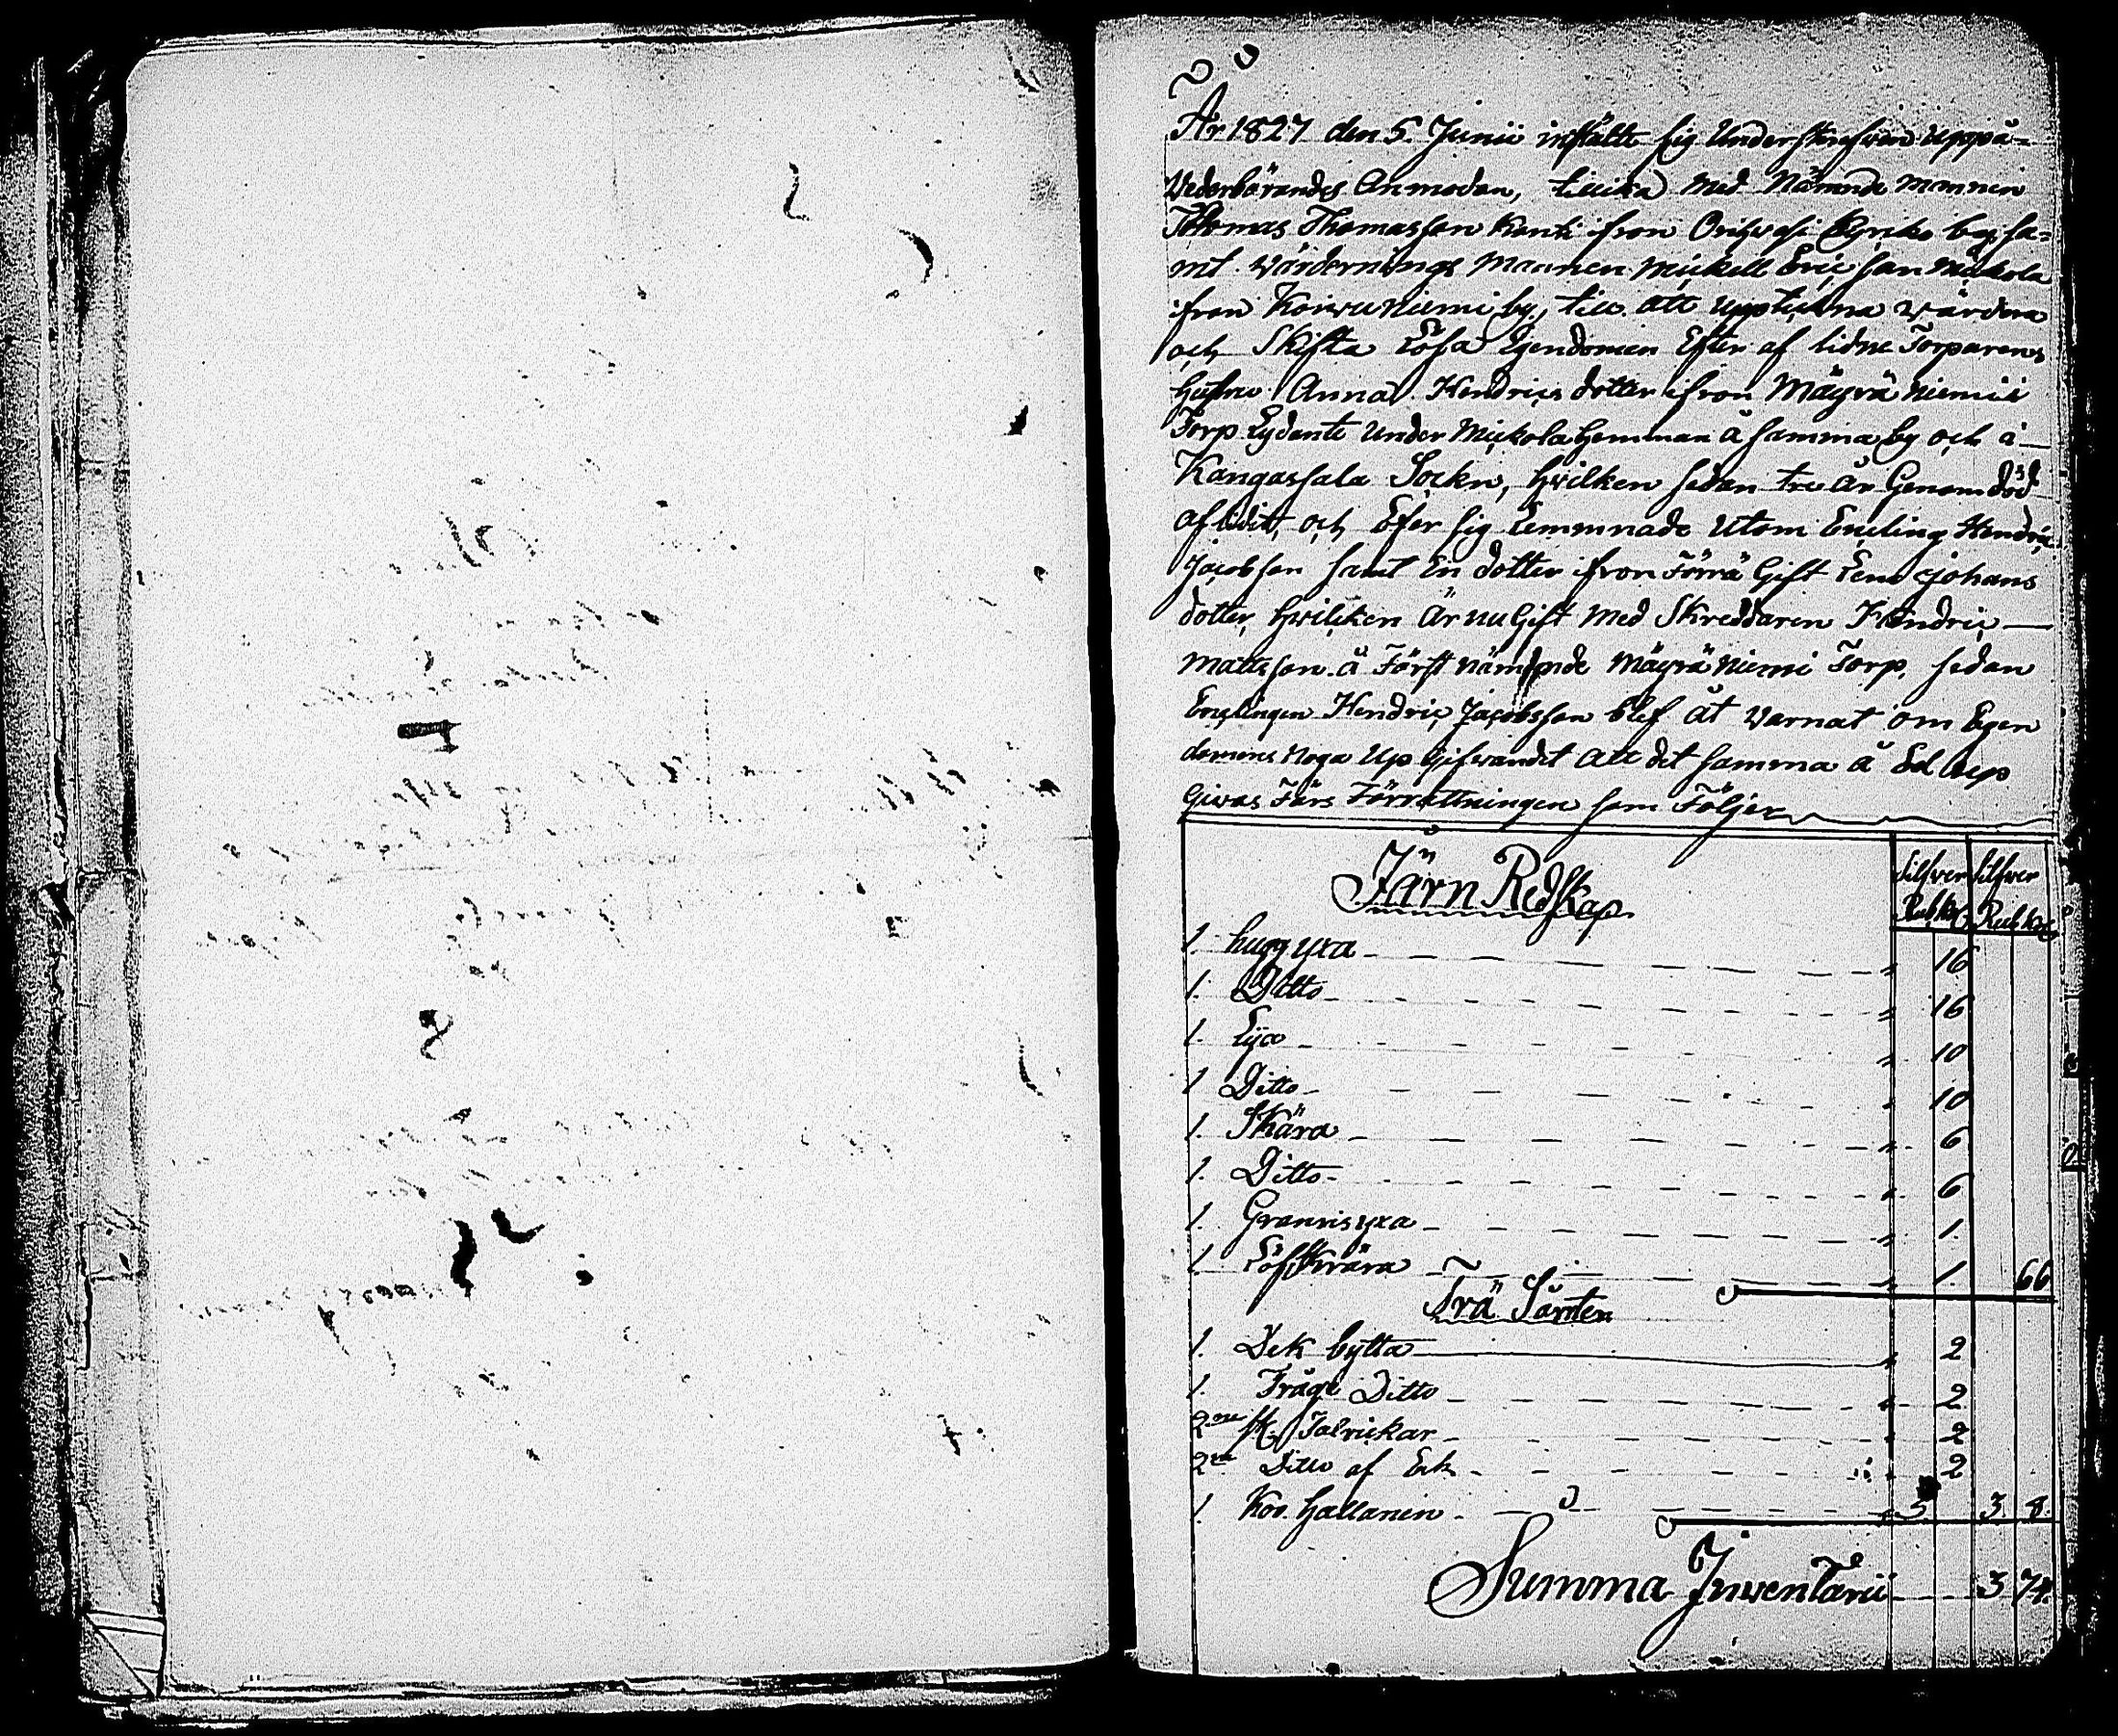 År 1827 den 5. Junii instälte sig Underskrefwen uppå-
Vederbörandes Anmodan, tillika med Nämnde mannen
Thomas Thomasson Kanti ifron Orihvesi Kyriko by, sa-
mt. Wärdernings Mannen Mickell Ericsson Mickola
ifron Koivuniemi by, till att uppteckna wärdera
och Skifta Lösa Egendomen Efter aflidne Torparens
hustru Anna Hendrics dotter ifron Mäyrä Niemi
Torp Lydante under Mickola Hemman å samma by och i
Kangassala Sockn, hvilken sedan tre år Genom död
aflidit, och Efter sig Lemmnade Utom Encling Hendric
Jacobsson samt En dotter ifron Förra Gift Lena Johans
dotter, hvilcken Är nu Gift Med Skreddaren Hendric
Mattsson å Först nämnde Mäyrä Niemi Torp, sedan
Enclingen Hendric Jacobsson blef åt varnat om Egen
domens Noga Up Gifvandet att det samma å Ed up
Givas Förs Förrättningen som Följer
Järn Redskap
Silfwer Silfwer
Rub Kop Rub Kop
1. huggyxa 16
1. Ditto 16
1. Lya 10
1 Ditto 10
1. Skära 6
1. Ditto 6
1. Granrisyxa 1.
1. Löfskrära 1. 66
Trä
1. Dek bytta 2
1. Tråge Ditto 2
2 st. Talrickar 2
2 Ditto af Eck 2
1. Kos. hallanen 3. 3. 8.
Summa Inventarii 3 74.